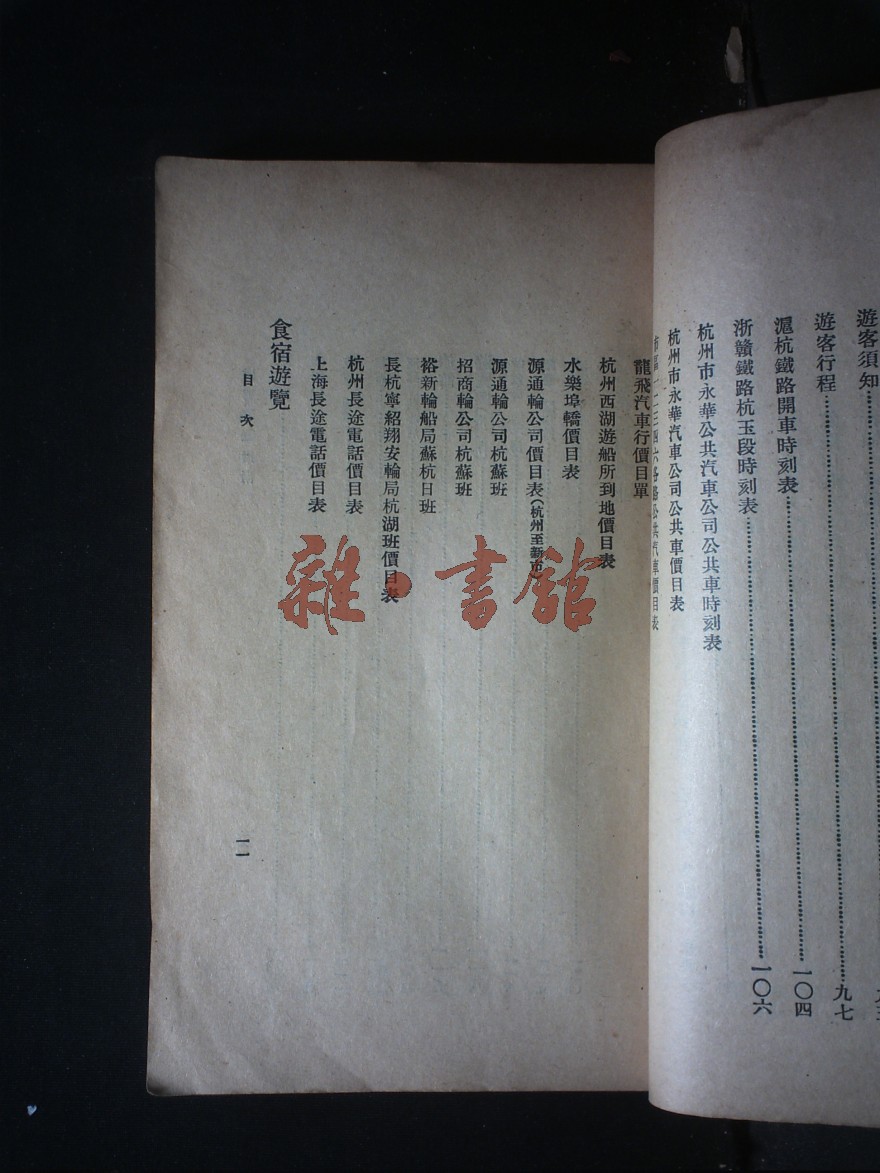 遊客須知
遊客行程……九七
滬杭鐵路開車時刻表……一〇四
浙贛鐵路杭玉段時刻表……一〇六
杭州市永華公共汽車公司公共車時刻表
杭州市永華汽車公司公共車價目表
各路公共汽車價目表
龍飛汽車行價目單
杭州西湖遊船所到地價目表
水樂埠轎價目表
源通輪公司價目表(杭州至新市)
源通輪公司杭蘇班
招商輪公司杭蘇班
裕新輪船局蘇杭日班
長杭寧紹翔安輪局杭湖班價目表
杭州長途電話價目表
上海長途電話價目表
食宿遊覽
目次
二
雜·書館